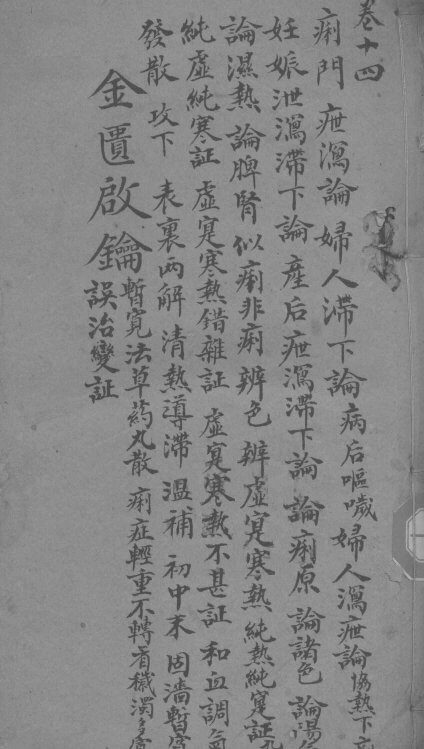 卷十四
痢門 泄瀉論 婦人滯下論 病后嘔噦 婦人瀉泄論 協熱下
妊娠泄瀉滯下論 產后泄瀉滯下論 論痢原 論諸色 論湯
論濕熱 論脾腎 似痢非痢辨色 辨虛寔寒熱 純熱純寔証
純虛純寒証 虛寔寒熱錯雜証 虛寔寒熱不甚証 和血調氣
發散 攻下 表裏兩解 清熱導滯 溫補 初中末 固濇暫寬
暫寬法 草藥丸散 痢症輕重不轉看穢濁多
金匱啟鑰 誤治變証